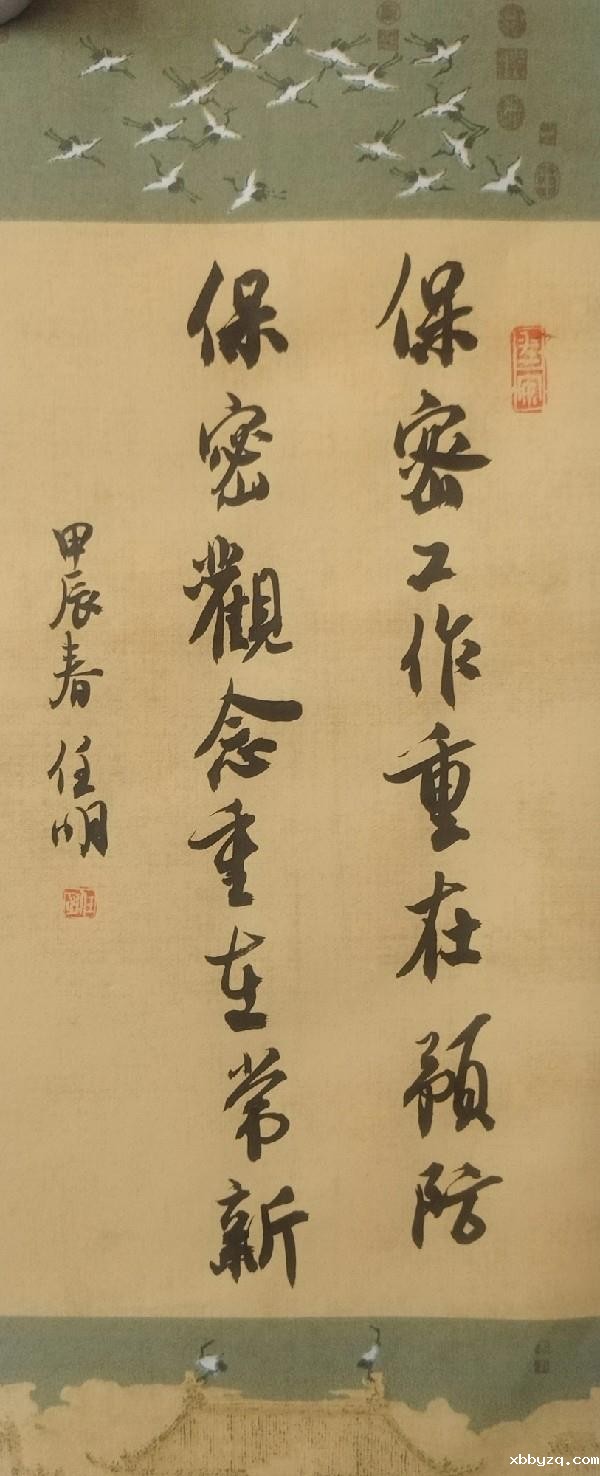 保密工作重在預防
保密觀念重在常新
甲辰春 任明
xbbyzq.com